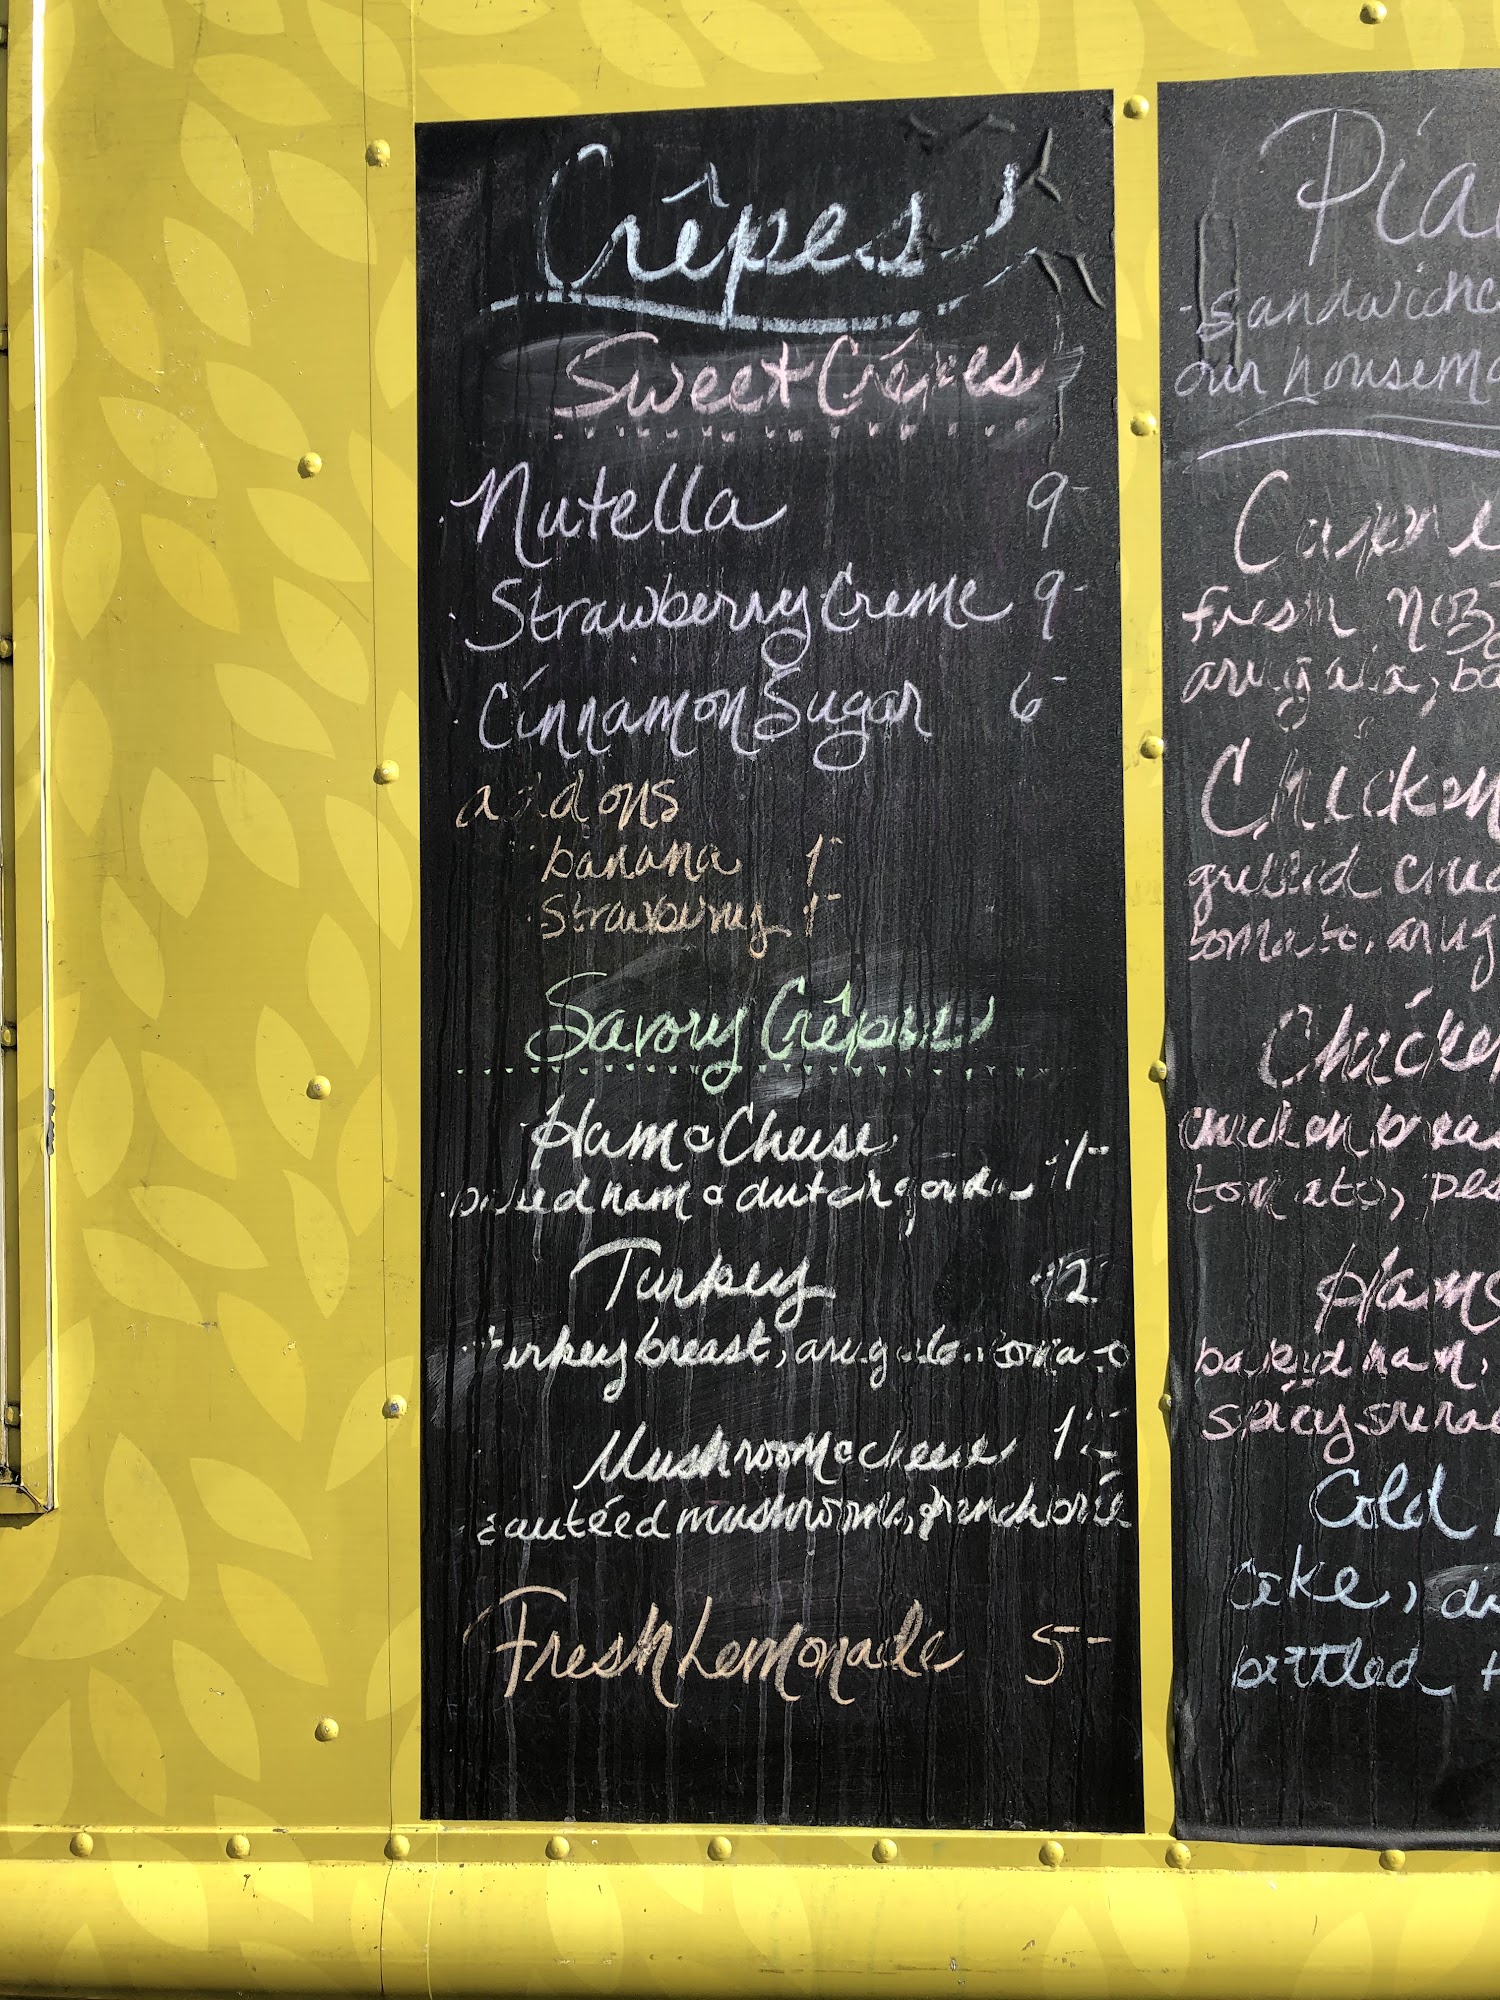 Crêpes
Sweet Crêpes
Nutella 9-
Strawberry Creme 9-
Cinnamon Sugar 6-
add ons
banana 1-
strawberry 1-
Savory Crêpes
Ham & Cheese
baked ham & dutch gouda
Turkey 12-
turkey breast, arugula, tomato
Mushroom & cheese
sautéed mushrooms, french brie
Fresh Lemonade 5-
Pia
sandwiche
our housema
Capre
fresh mozz
arugula, ba
Chicken
grilled chic
tomato, arug
Chicken
chicken brea
tomato, pes
Ham &
baked ham,
spicy srirac
Cold
Coke, di
bottled